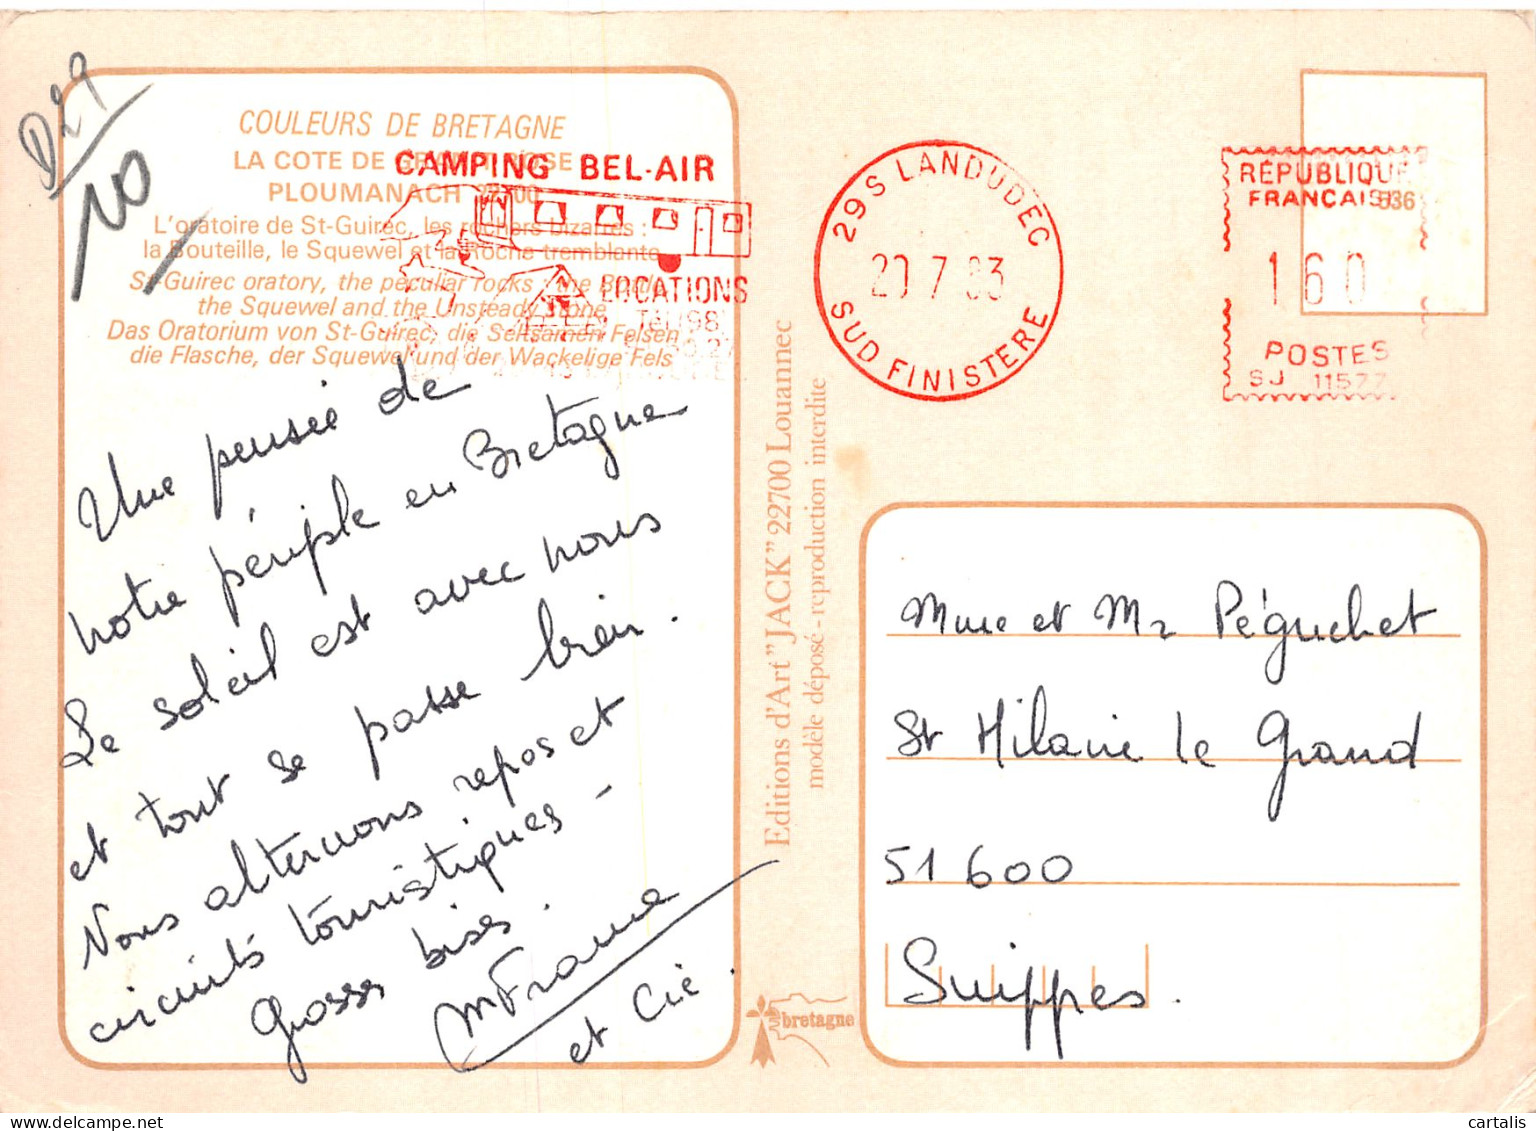 D29
10
COULEURS DE BRETAGNE
LA COTE DE
PLOUMANACH
L'oratoire de St-Guirec, les rochers bizarres :
la Bouteille, le Squewel et la Roche tremblante
St-Guirec oratory, the peculiar rocks : the
the Squewel and the Unsteady Stone
Das Oratorium von St-Guirec, die Seltsamen Felsen
die Flasche, der Squewel und der Wackelige Fels
CAMPING BEL-AIR
LOCATIONS
Tél (98)
Une pensée de
notre périple en Bretagne
Le soleil est avec nous
et tout se passe bien.
Nous alternons repos et
circuits touristiques -
Grosses bises.
et Cie.
Editions d'Art "JACK" 22700 Louannec
modèle déposé - reproduction interdite
bretagne
29S LANDUDEC
20 7 83
SUD FINISTERE
RÉPUBLIQUE
FRANCAISE
936
160
POSTES
SJ 11577
Mme et Mr Péguchet
St Hilaire le Grand
51 600
Suippes.
cartalis